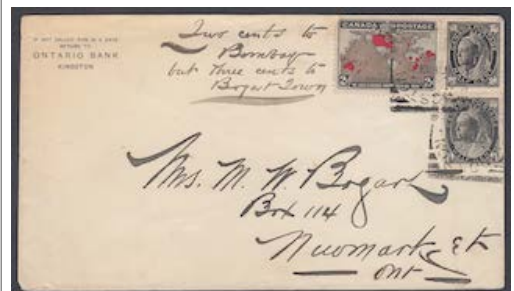 IF NOT CALLED FOR IN 5 DAYS
RETURN TO
ONTARIO BANK
KINGSTON
Two cents to
Bombay
but three cents to
Bogart Town
CANADA POSTAGE
Mrs. M. W. Bogart
Box 114
Newmarket
Ont